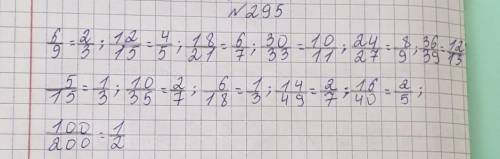 №295
6/9=2/3; 12/15=4/5; 18/21=6/7; 30/33=10/11; 24/27=8/9; 36/39=12/13
5/15=1/3; 10/35=2/7; 6/18=1/3; 14/49=2/7; 16/40=2/5;
100/200=1/2